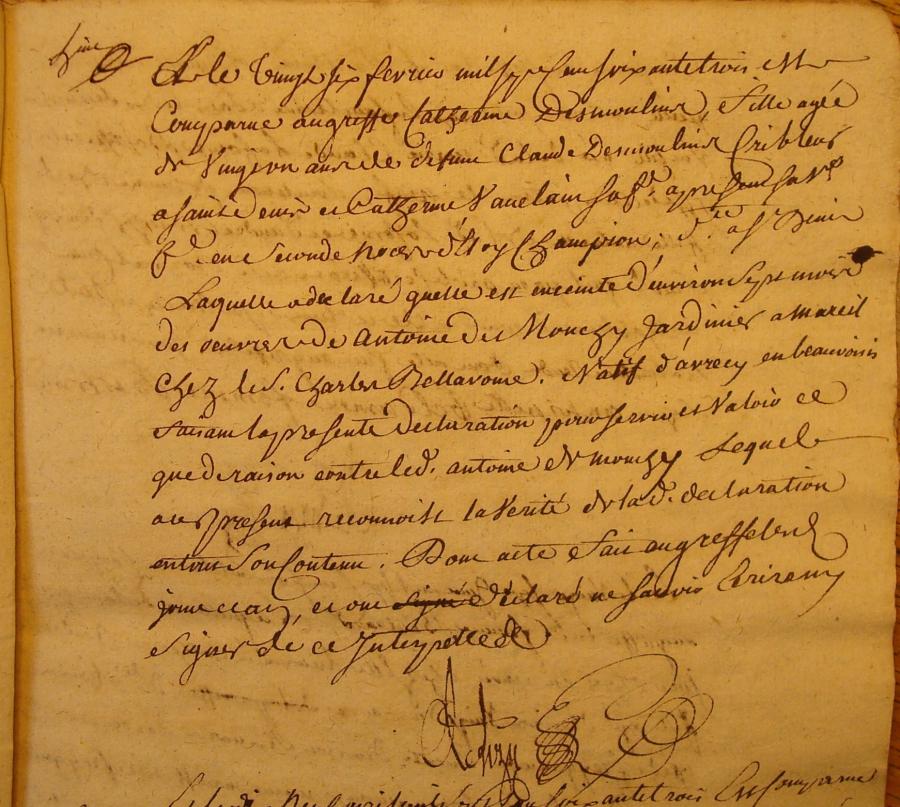 Et le vingt six fevrier mil sept cent soixante trois est
comparue au greffe Catherine Desmoulins, fille agée
de vingt un ans de defunt Claude Desmoulins Cribleur
a saint denis et Catherine Vauclain sa fe. a present sa ve.
fe. en seconde noces d'Eloy Champion, dte. a St Denis
Laquelle a declaré quelle est enceinte d'environ sept mois
des oeuvres de Antoine de Mouchy Jardinier a mareil
chez le S. Charles Bellavoine. Natif d'avrecy en beauvoisis
faisant la presente declaration pour servir et valoir ce
que de raison contre led. antoine de mouchy Lequel
a ce present reconnoist la verité de lad. declaration
en tout son contenu. Dont acte fait au greffe lesd
jour et an, et ont signé declaré ne savoir Ecrire ny
signer de ce Interpellés
soixante trois Est comparue